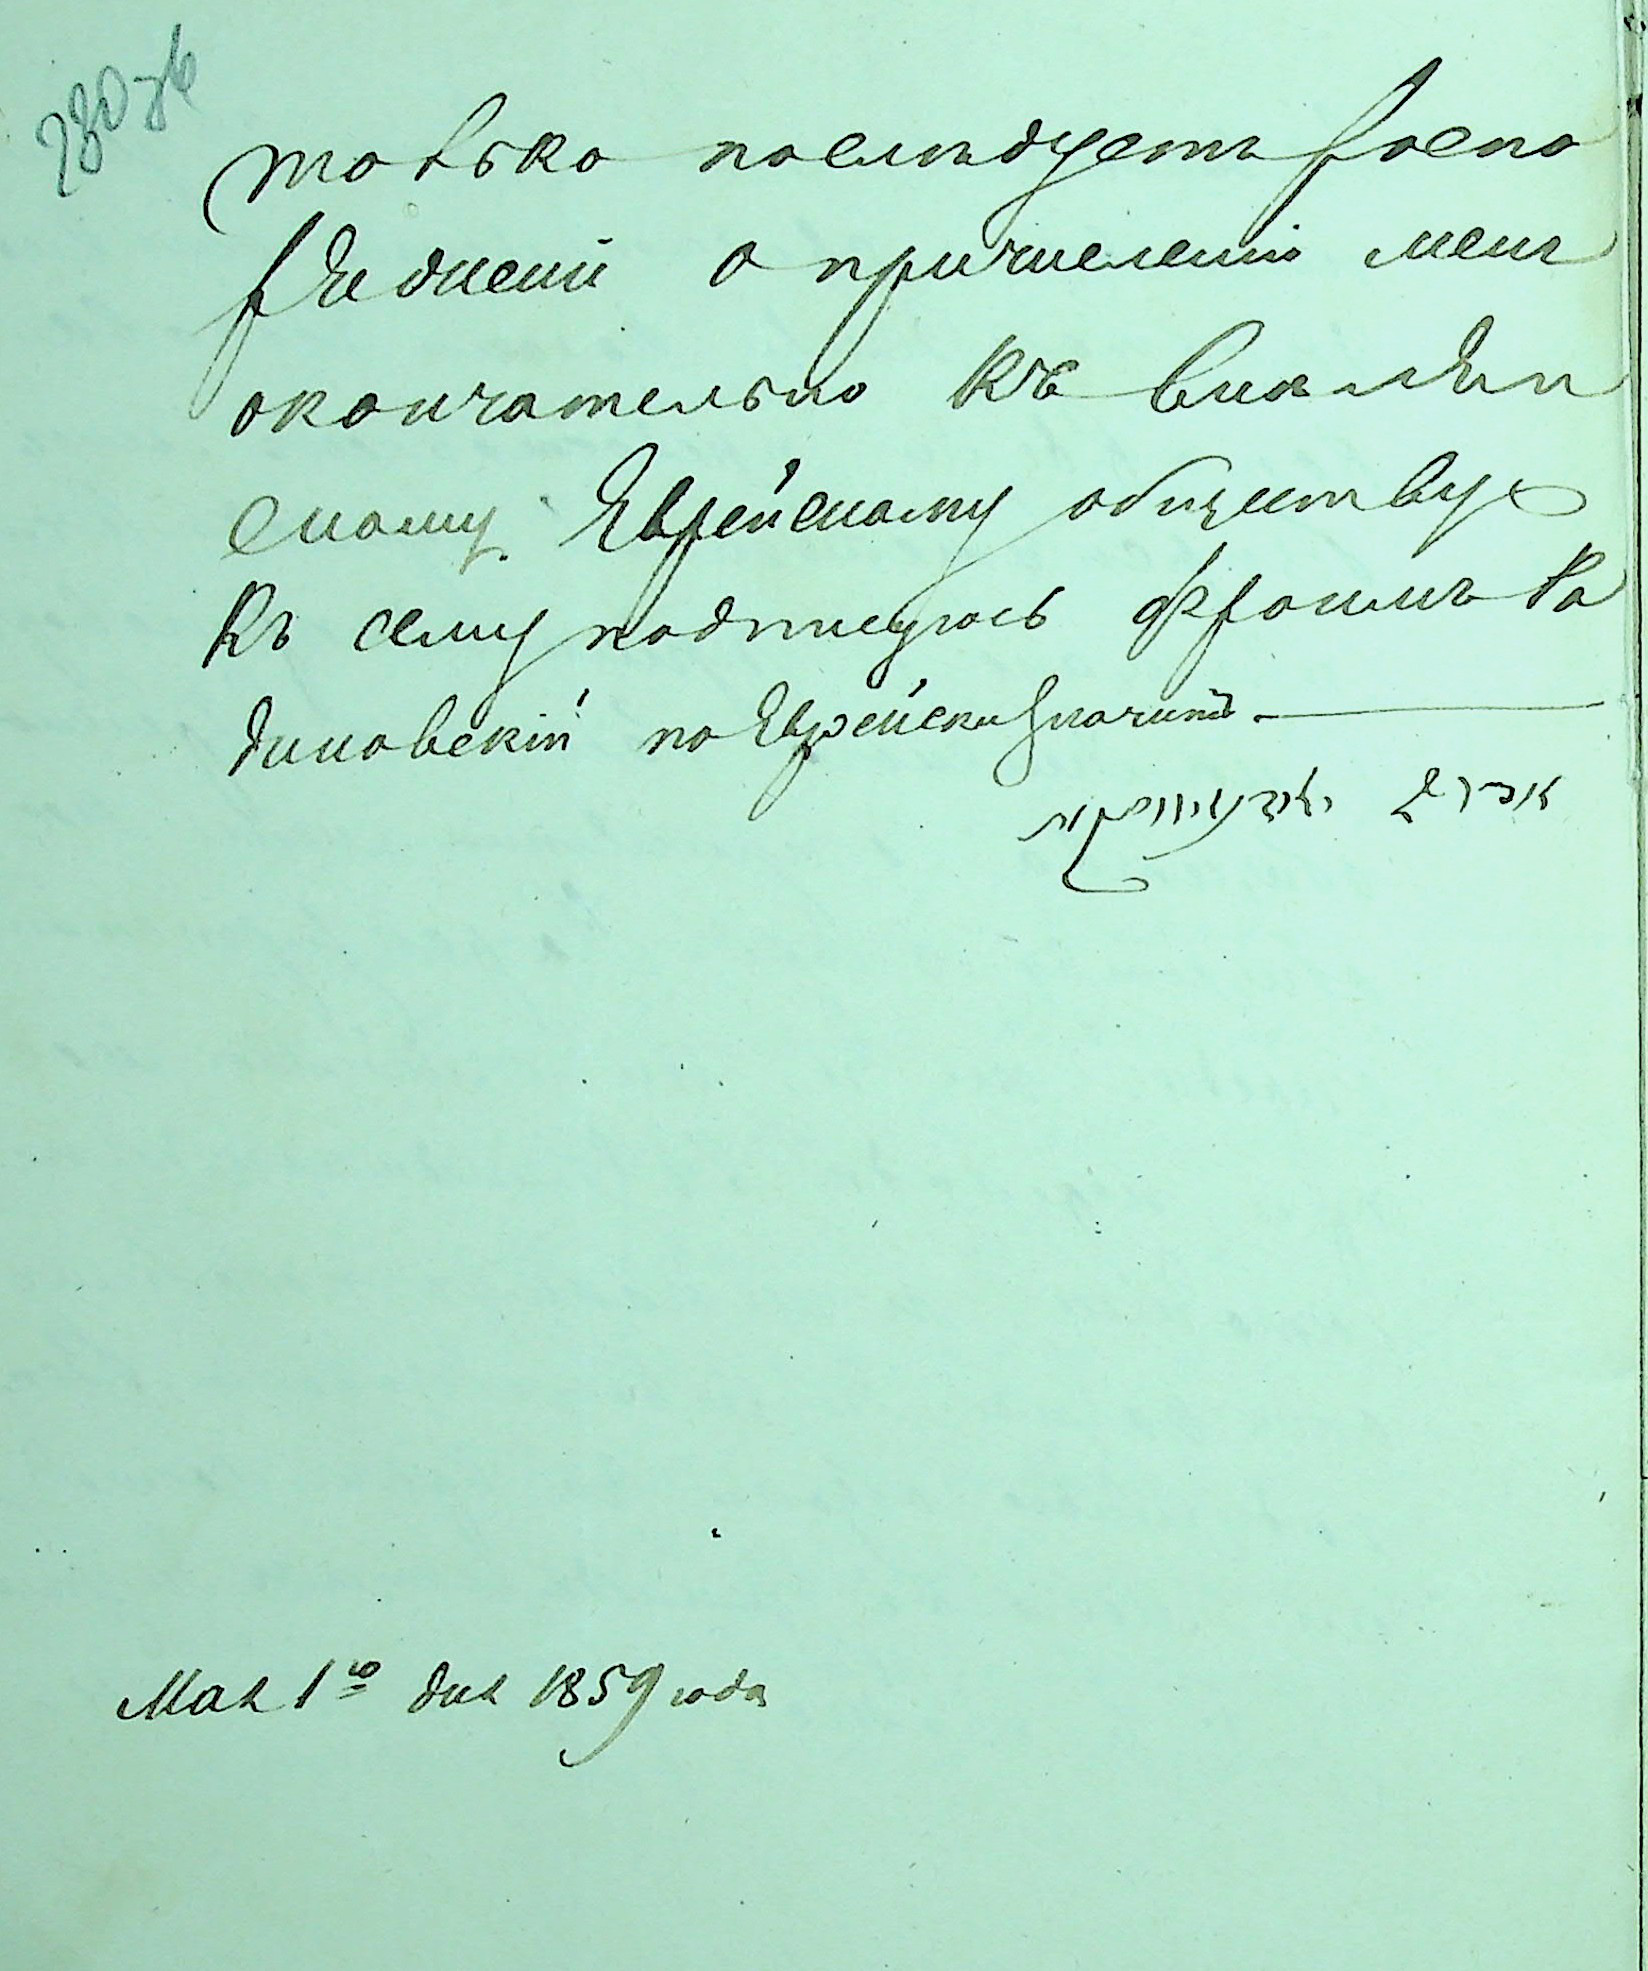 280 об
только послѣдуетъ распо
ряженій о причисленіи меня
окончательно къ Вилян
скому Еврейскому обществу
Къ сему подпишусь Фроимъ Ра
диновскій по Еврейски
Мая 1го дня 1859 года